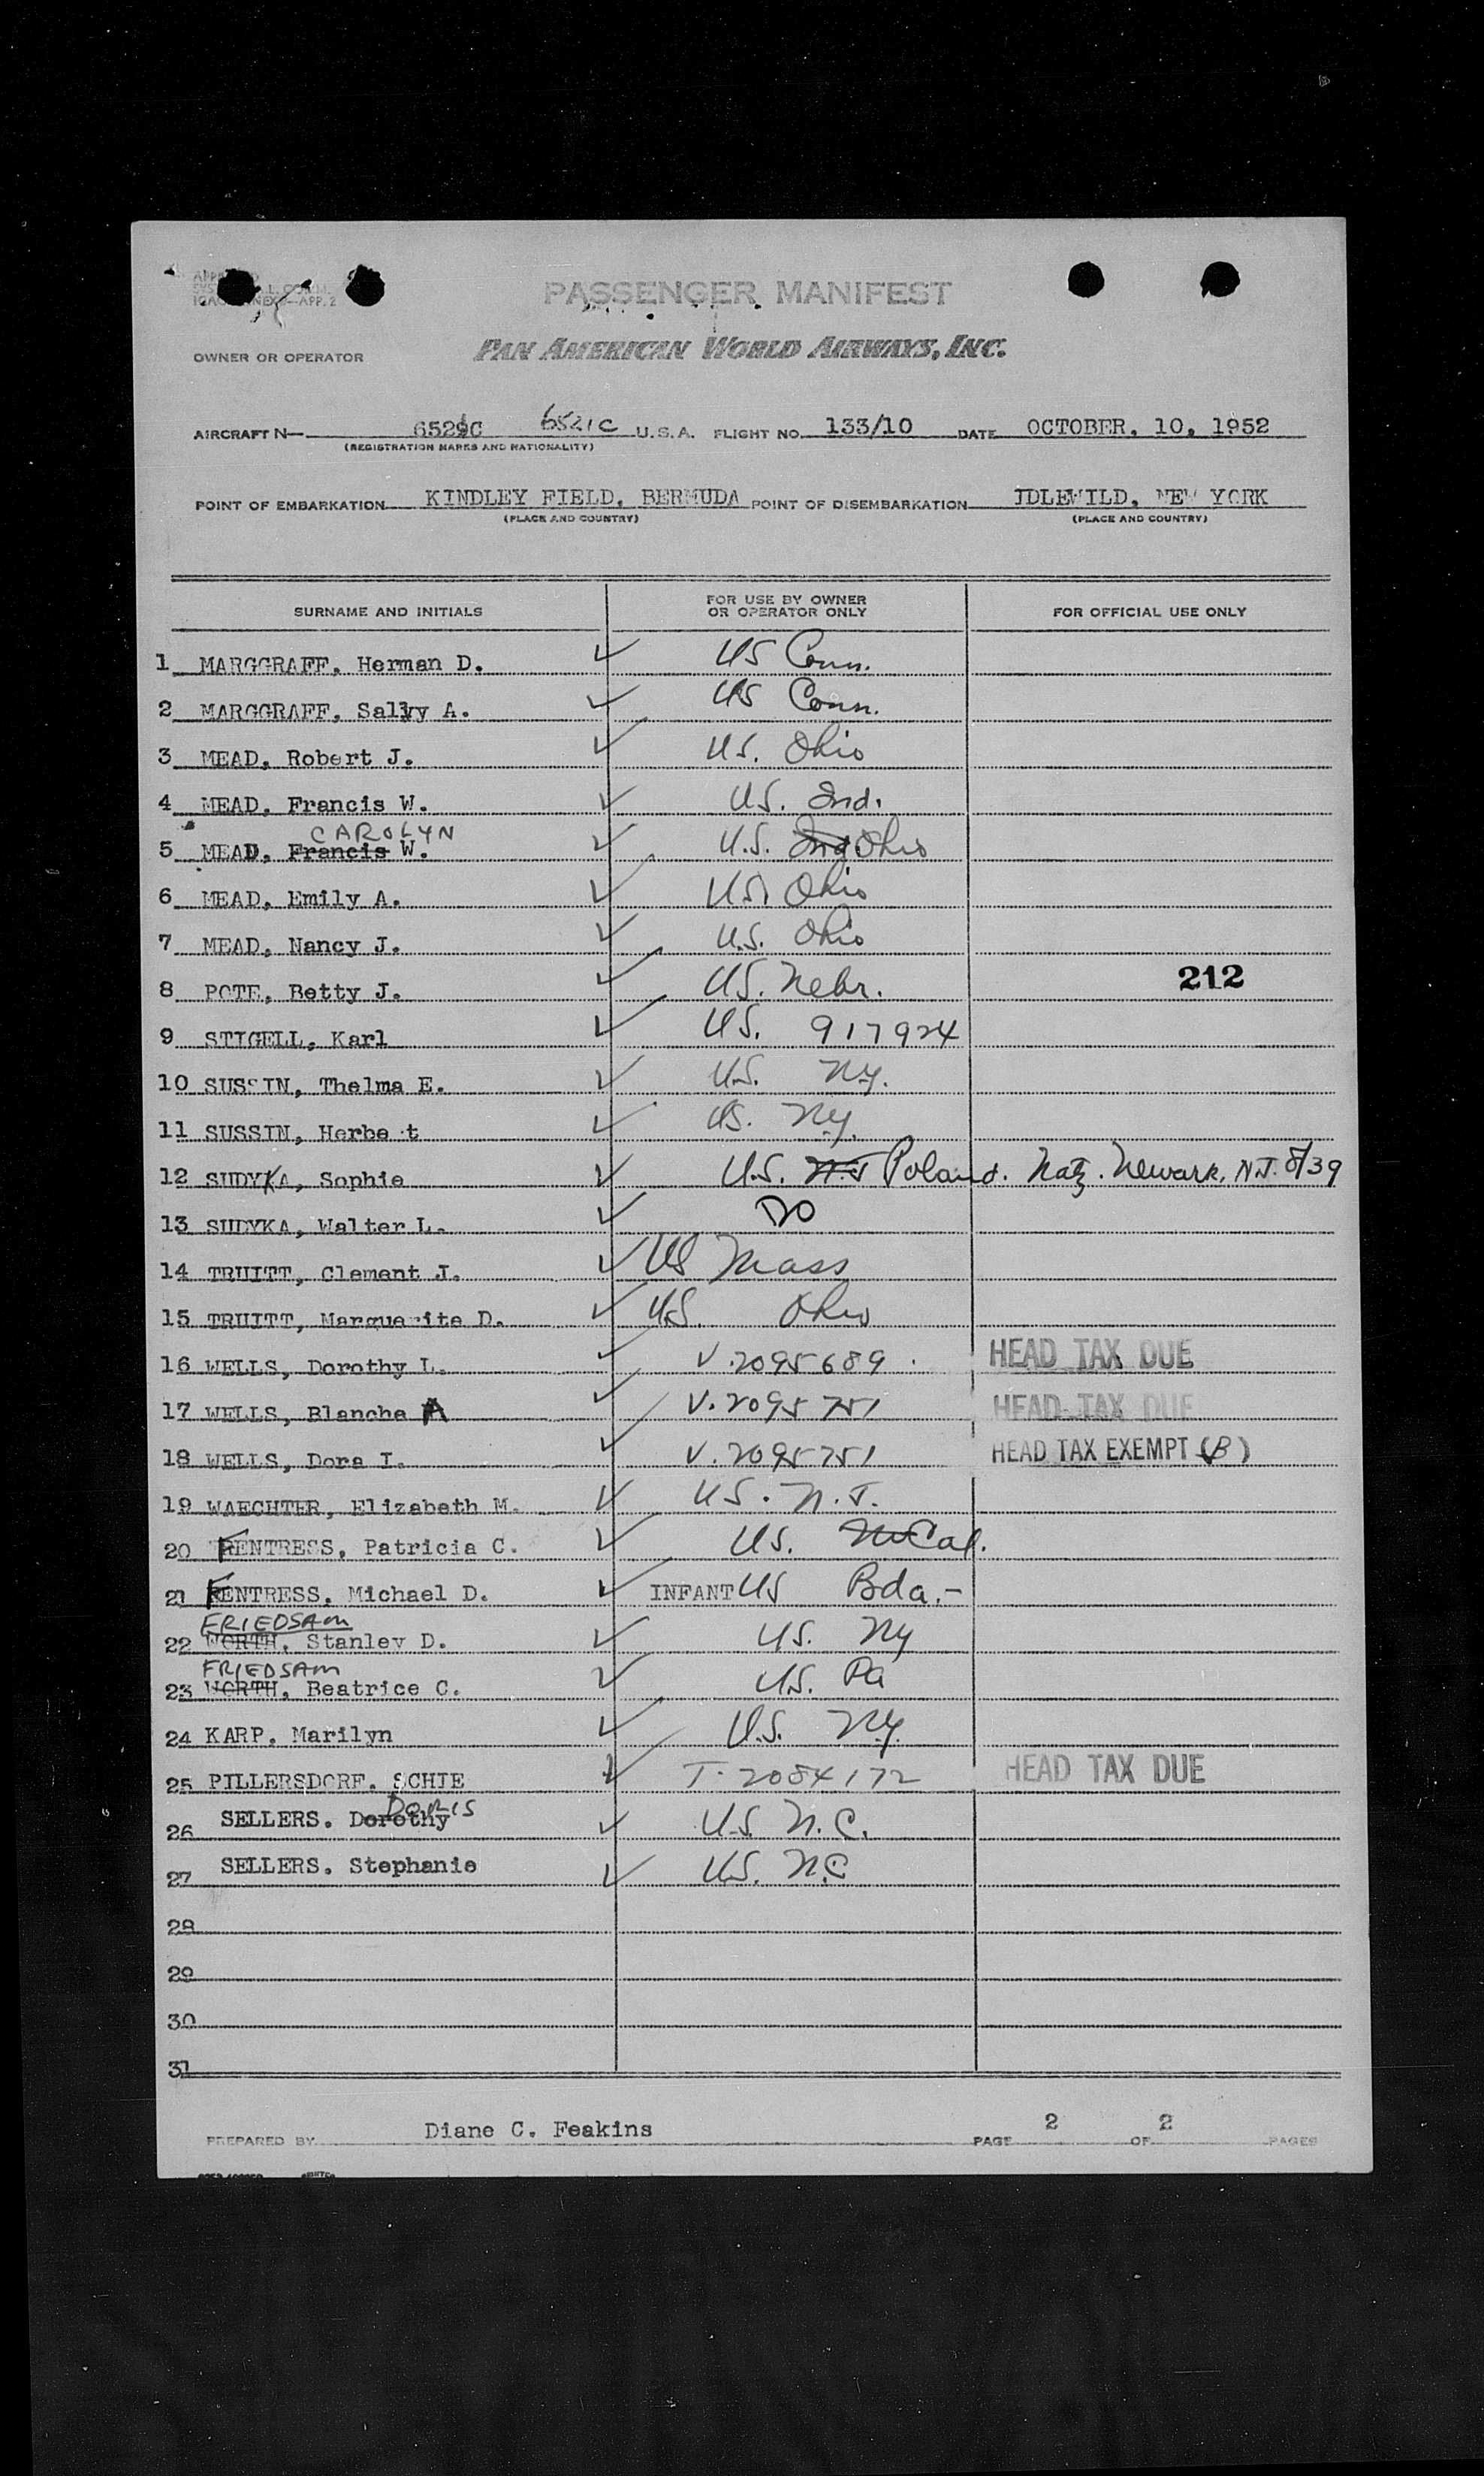 PASSENGER MANIFEST
OWNER OR OPERATOR PAN AMERICAN WORLD AIRWAYS, INC.
AIRCRAFT N— 6521C U.S.A. FLIGHT NO. 133/10 DATE OCTOBER, 10, 1952
(REGISTRATION MARKS AND NATIONALITY)
POINT OF EMBARKATION KINDLEY FIELD, BERMUDA POINT OF DISEMBARKATION IDLEWILD, NEW YORK
(PLACE AND COUNTRY) (PLACE AND COUNTRY)
SURNAME AND INITIALS FOR USE BY OWNER OR OPERATOR ONLY FOR OFFICIAL USE ONLY
1 MARGGRAFF, Herman D. ✓ US Conn.
2 MARGGRAFF, Sally A. ✓ US Conn.
3 MEAD, Robert J. ✓ US. Ohio
4 MEAD, Francis W. ✓ US. Ind.
CAROLYN
5 MEAD, Francis W. ✓ U.S. Ind Ohio
6 MEAD, Emily A. ✓ US. Ohio
7 MEAD, Nancy J. ✓ U.S. Ohio
8 POTE, Betty J. ✓ US. Nebr. 212
9 STIGELL, Karl ✓ US. 917924
10 SUSSIN, Thelma E. ✓ U.S. N.y.
11 SUSSIN, Herbe t ✓ US. N.y.
12 SUDYKA, Sophie ✓ U.S. N.J Poland. Natz. Newark, N.J. 8/39
13 SUDYKA, Walter L. ✓ DO
14 TRUITT, Clement J. ✓ US Mass
15 TRUITT, Marguerite D. ✓ U.S. Ohio
16 WELLS, Dorothy L. ✓ V.2095689. HEAD TAX DUE
17 WELLS, Blanche A ✓ V.2095751 HEAD TAX DUE
18 WELLS, Dora I. ✓ V.2095751 HEAD TAX EXEMPT (B)
19 WAECHTER, Elizabeth M. ✓ US. N.J.
20 FENTRESS, Patricia C. ✓ US. Cal.
21 FENTRESS, Michael D. ✓ INFANT US Bda.-
FRIEDSAM
22 WORTH, Stanley D. ✓ US. Ny
FRIEDSAM
23 WORTH, Beatrice C. ✓ U.S. Pa
24 KARP, Marilyn ✓ U.S. N.y.
25 PILLERSDORF, SCHIE ✓ T-2084172 HEAD TAX DUE
DORIS
26 SELLERS. Dorothy ✓ U.S. N.C.
27 SELLERS. Stephanie ✓ U.S. N.C
28
29
30
31
PREPARED BY Diane C. Feakins PAGE 2 OF 2 PAGES